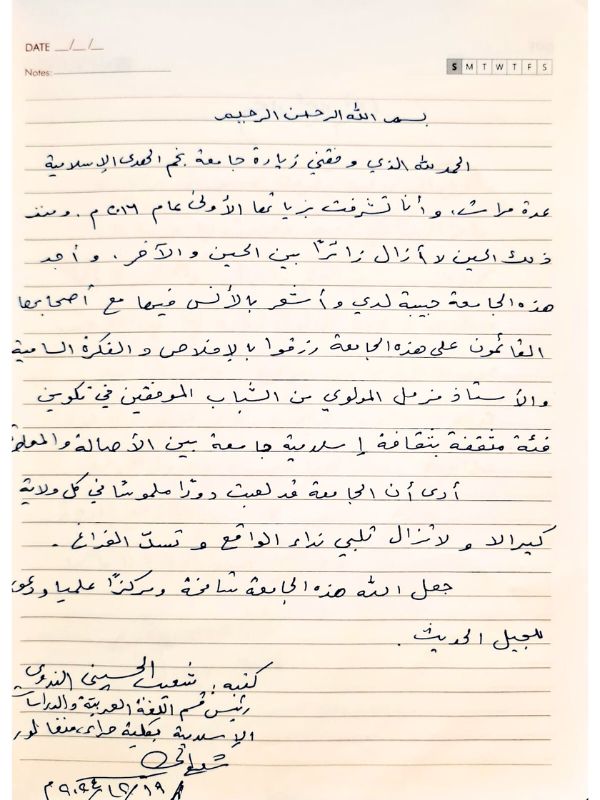 DATE __/__/__
Notes:
S M T W T F S
بسم الله الرحمن الرحيم
الحمد لله الذي وفقني زيارة جامعة نجم الهدى الإسلامية
عدة مرات، وأنا تشرفت بزيارتها الأولى عام ٢٠١٦م. ومنذ
ذلك الحين لا أزال زائرًا بين الحين والآخر، وأجد
هذه الجامعة حبيبة لدي وأشعر بالأنس فيها مع أصحابها
القائمون على هذه الجامعة رزقوا بالإخلاص والفكرة السامية
والأستاذ مزمل المولوي من الشباب الموفقين في تكوين
فئة مثقفة بثقافة إسلامية جامعة بين الأصالة
أرى أن الجامعة قد لعبت دورًا ملموسًا في كل ولاية
كيرالا ولا تزال تلبي نداء الواقع وتسدّ الفراغ.
جعل الله هذه الجامعة شامخة ومركزًا علميا
للجيل الحديث.
كتبه: شعيب الحسيني الندوي
رئيس قسم اللغة العربية والدراسات
الإسلامية بكلية